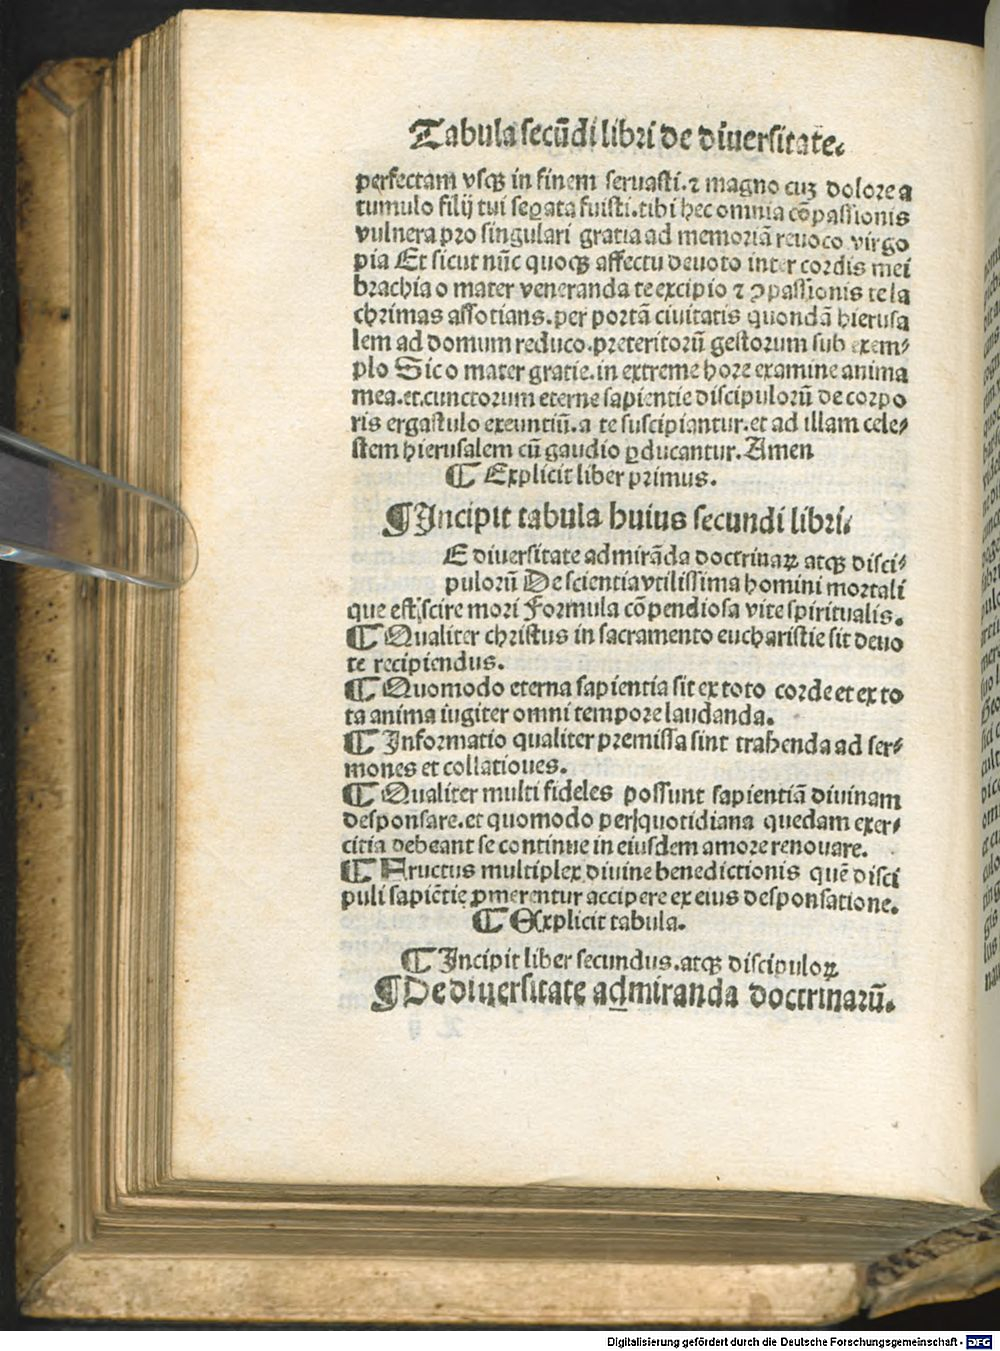 Tabula secūdi libri de diuersitate.
perfectam vsqꝫ in finem seruasti.⁊ magno cuꝫ dolore a
tumulo filij tui seꝑata fuisti.tibi hec omnia cōpassionis
vulnera pro singulari gratia ad memoriā reuoco virgo
pia Et sicut nūc quoqꝫ affectu deuoto inter cordis mei
brachia o mater veneranda te excipio ⁊ ꝯpassionis te la
chrimas assotians.per portā ciuitatis quondā hierusa
lem ad domum reduco.preteritorū gestorum sub exem⸗
plo Sic o mater gratie.in extreme hore examine anima
mea.et.cunctorum eterne sapientie discipulorū de corpo
ris ergastulo exeuntiū.a te suscipiantur.et ad illam cele⸗
stem hierusalem cū gaudio ꝑducantur.Amen
¶ Explicit liber primus.
¶ Incipit tabula huius secundi libri.
E diuersitate admirāda doctrinaꝝ atqꝫ disci⸗
pulorū De scientia vtilissima homini mortali
que est scire mori Formula cōpendiosa vite spiritualis.
¶ Qualiter christus in sacramento eucharistie sit deuo
te recipiendus.
¶ Quomodo eterna sapientia sit ex toto corde et ex to
ta anima iugiter omni tempore laudanda.
¶ Informatio qualiter premissa sint trahenda ad ser⸗
mones et collatioues.
¶ Qualiter multi fideles possunt sapientiā diuinam
desponsare.et quomodo per quotidiana quedam exer⸗
citia debeant se continue in eiusdem amore renouare.
¶ Fructus multiplex diuine benedictionis quē disci
puli sapiētie ꝓmerentur accipere ex eius desponsatione.
¶ Explicit tabula.
¶ Incipit liber secundus.atqꝫ discipuloꝝ
¶ De diuersitate admiranda doctrinarū.
Digitalisierung gefördert durch die Deutsche Forschungsgemeinschaft - DFG